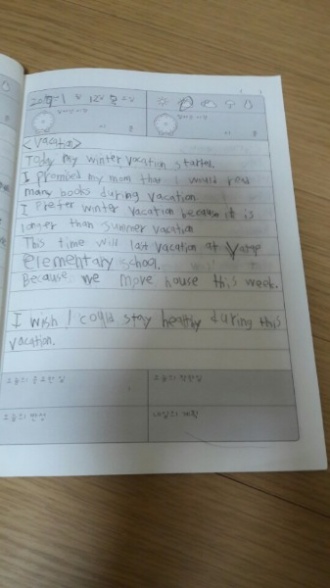 <Vacation>
Today my winter vacation started.
I promised my mom that I would read
many books during vacation
I prefer winter vacation because it is
longer than summer vacation
This time will last vacation at
elementary school.
Because we move house this week.
I wish I could stay healthy during this
vacation.
오늘의 중요한 일 오늘의 착한일
오늘의 반성 내일의 계획